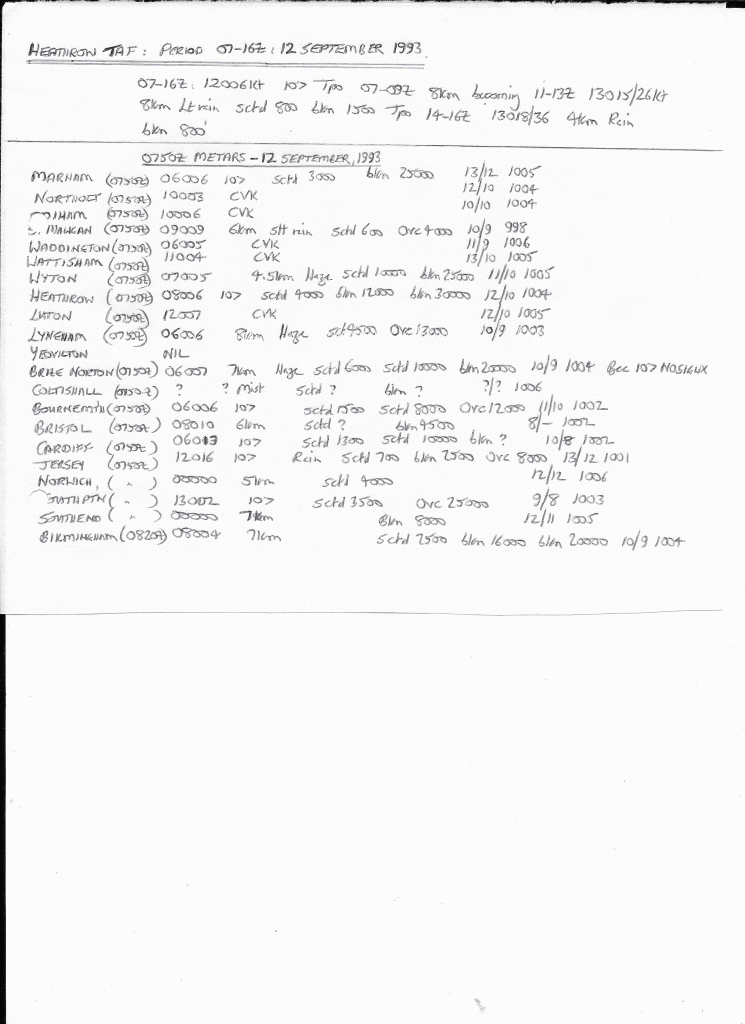 HEATHROW TAF: PERIOD 07-16Z: 12 SEPTEMBER 1993
07-16Z: 12006Kt 10> Tpo 07-09Z 8km becoming 11-13Z 13015/26Kt
8km Lt rain sctd 800 bkn 1500 Tpo 14-16Z 13018/36 4km Rain
bkn 800
0750Z METARS - 12 SEPTEMBER, 1993
MARHAM (0750Z) 06006 10> sctd 3000 bkn 25000 13/12 1005
NORTHOLT (0750Z) 10003 CVK 12/10 1004
ODIHAM (0750Z) 10006 CVK 10/10 1004
S. MAWGAN (0750Z) 09009 6km slt rain sctd 600 Ovc 4000 10/9 998
WADDINGTON (0750Z) 06005 CVK 11/9 1006
WATTISHAM (0750Z) 11004 CVK 13/10 1005
WYTON (0750Z) 07005 4.5km Haze sctd 10000 bkn 25000 11/10 1005
HEATHROW (0750Z) 08006 10> sctd 4000 bkn 12000 bkn 30000 12/10 1004
LUTON (0750Z) 12007 CVK 12/10 1005
LYNEHAM (0750Z) 06006 8km Haze sct 4500 Ovc 13000 10/9 1003
YEOVILTON NIL
BRIZE NORTON (0750Z) 06007 7km Haze sctd 6000 sctd 10000 bkn 20000 10/9 1004 Bec 10> NOSIGWX
COLTISHALL (0750Z) ? ? Mist Sctd ? bkn ? ?/? 1006
BOURNEMTH (0750Z) 06006 10> sctd 1500 sctd 8000 Ovc 12000 11/10 1002
BRISTOL (0750Z) 08010 6km sctd ? bkn 4500 8/- 1002
CARDIFF (0750Z) 06013 10> sctd 1300 sctd 10000 bkn ? 10/8 1002
JERSEY (0750Z) 12016 10> Rain sctd 700 bkn 2500 Ovc 8000 13/12 1001
NORWICH, ( " ) 00000 5km sctd 4000 12/12 1006
SOUTHPTN ( " ) 13002 10> sctd 3500 Ovc 25000 9/8 1003
SOUTHEND ( " ) 00000 7km Bkn 8000 12/11 1005
BIRMINGHAM (0820Z) 08004 7km sctd 2500 bkn 16000 bkn 20000 10/9 1004